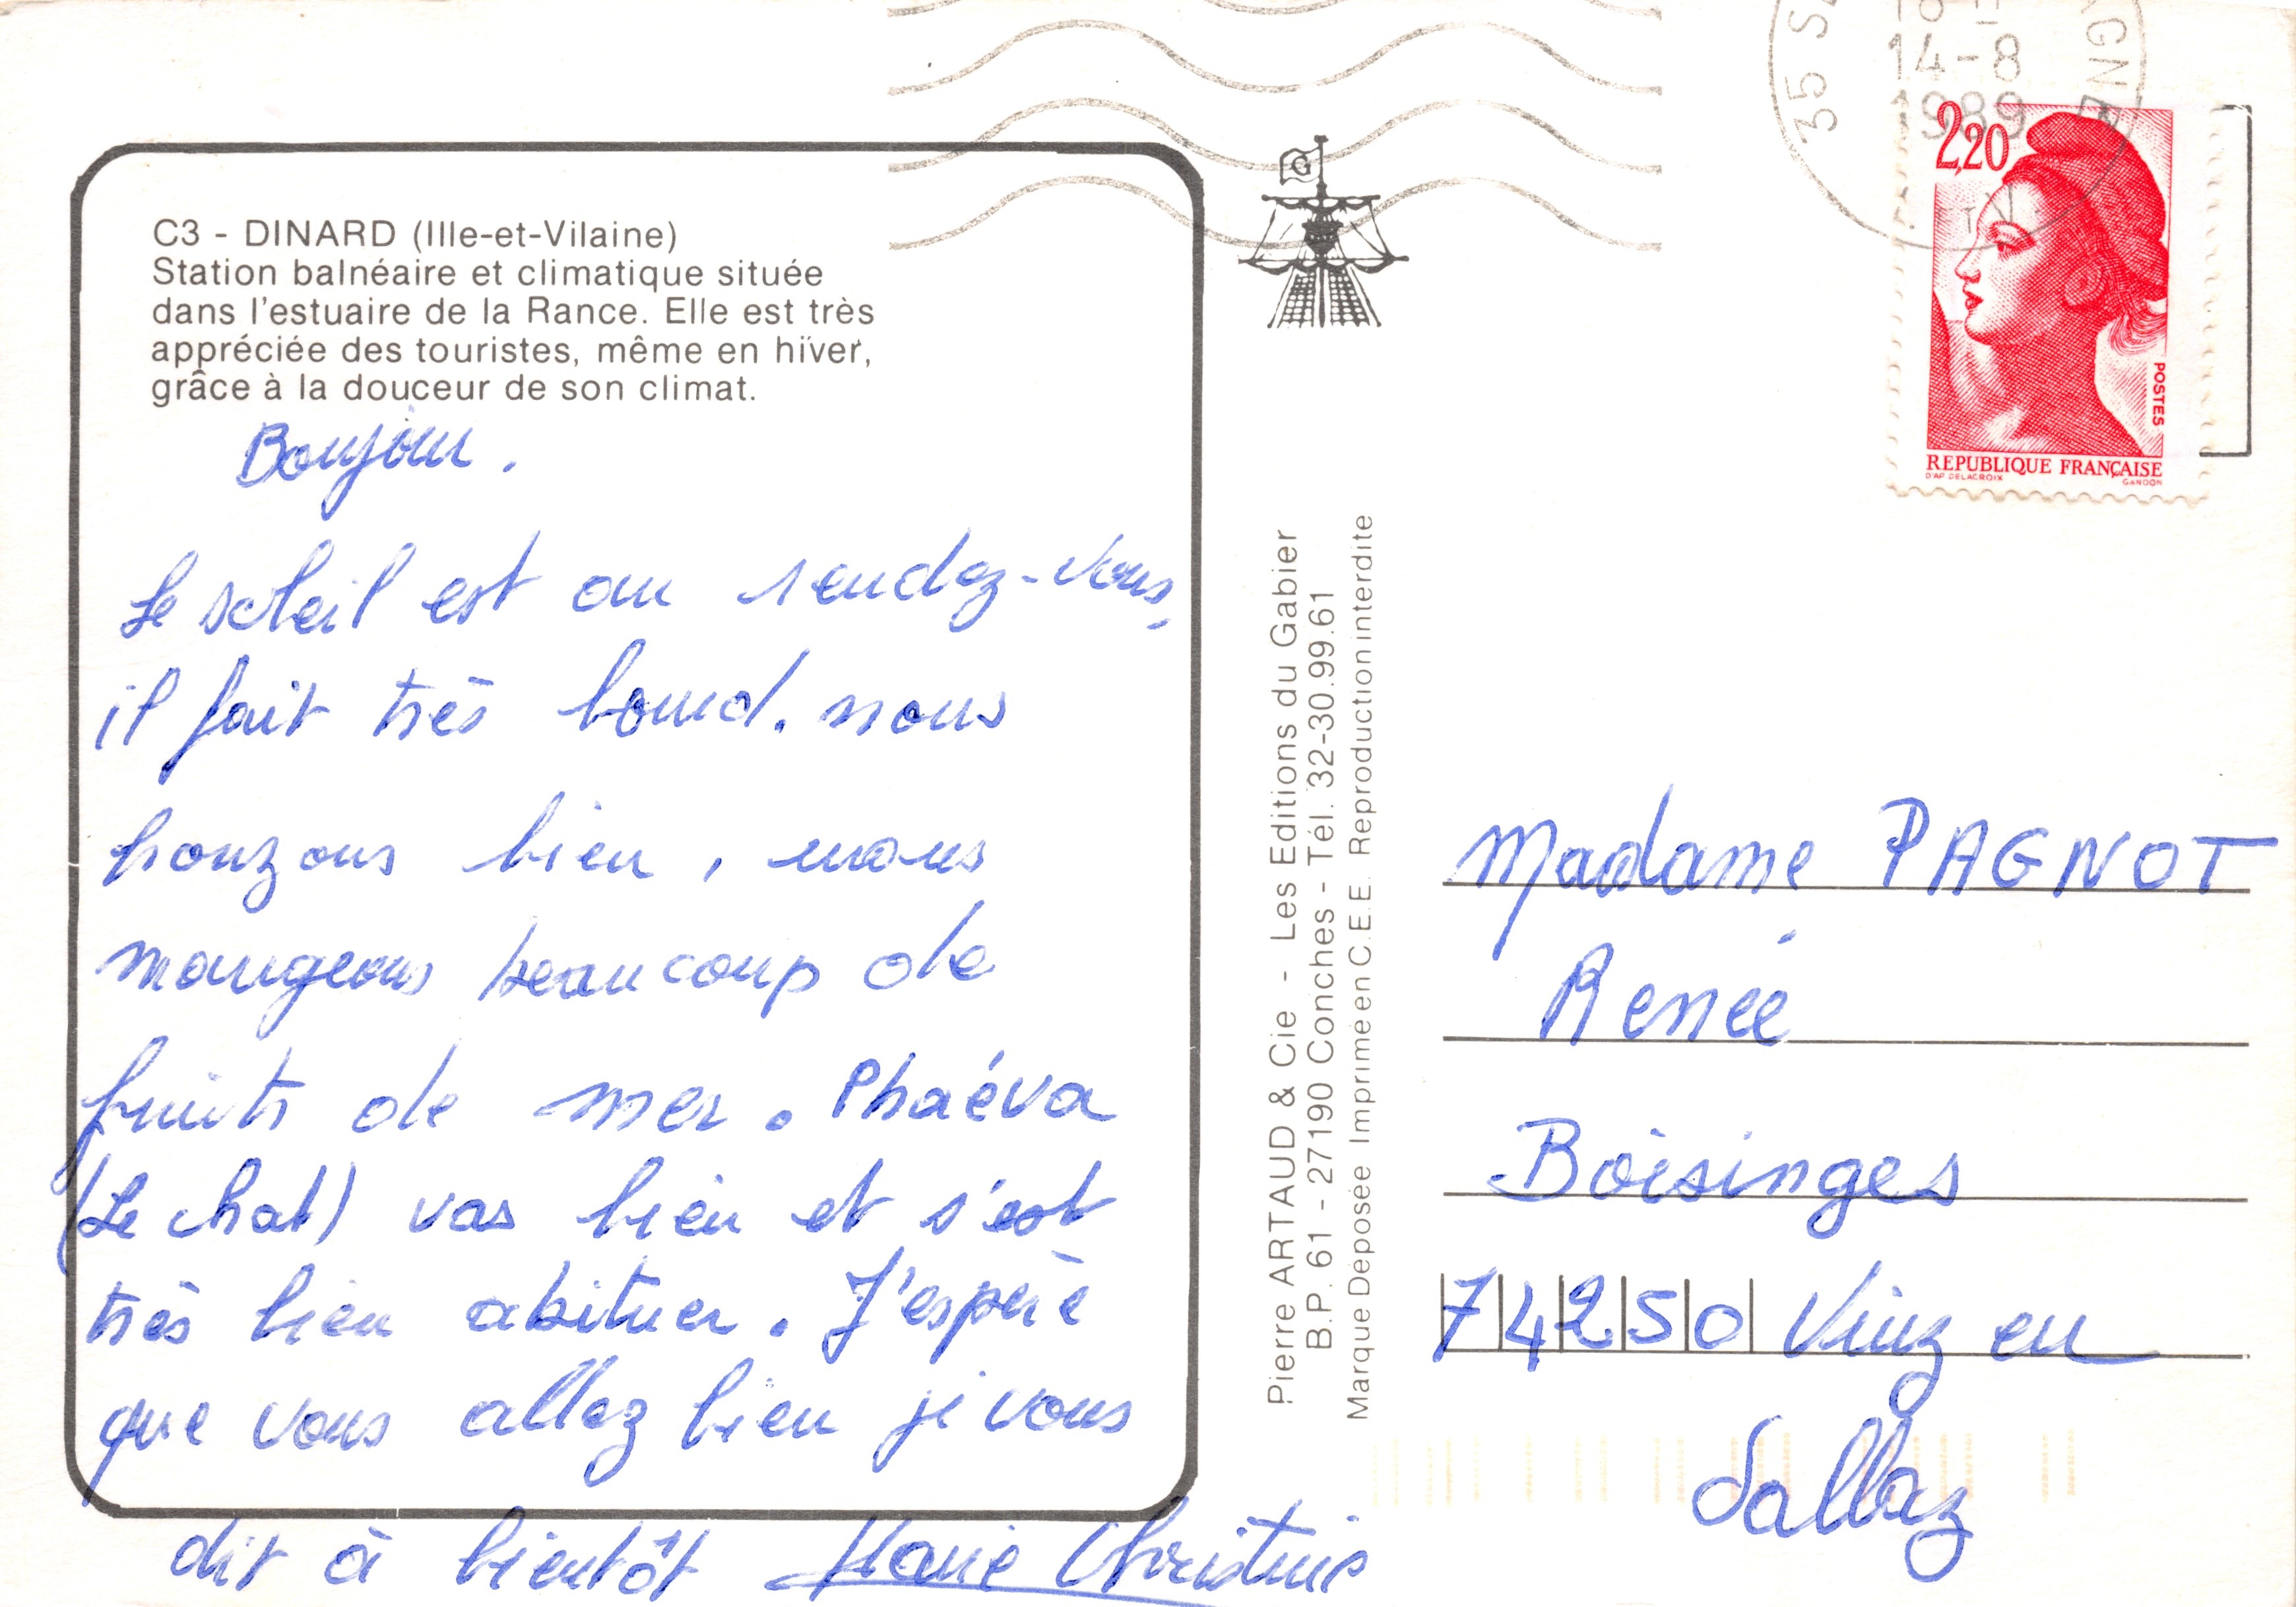 C3 - DINARD (Ille-et-Vilaine)
Station balnéaire et climatique située
dans l'estuaire de la Rance. Elle est très
appréciée des touristes, même en hiver,
grâce à la douceur de son climat.
Bonjour.
Le soleil est au rendez-vous,
il fait très lourd. nous
bronzons bien, nous
mangeons beaucoup de
fruits de mer. Phaéva
(Le chat) vas bien et s'est
très bien abituer. J'espère
que vous allez bien je vous
dit à bientôt Marie Christine
G
Pierre ARTAUD & Cie - Les Editions du Gabier
B.P. 61 - 27190 Conches - Tél. 32-30.99.61
Marque Déposée Imprimé en C.E.E. Reproduction interdite
35 S
AGNE
14-8
1989
2,20
POSTES
REPUBLIQUE FRANÇAISE
D'AP DELACROIX GANDON
Madame PAGNOT
Renée
Boisinges
74250 Viuz en
Sallaz